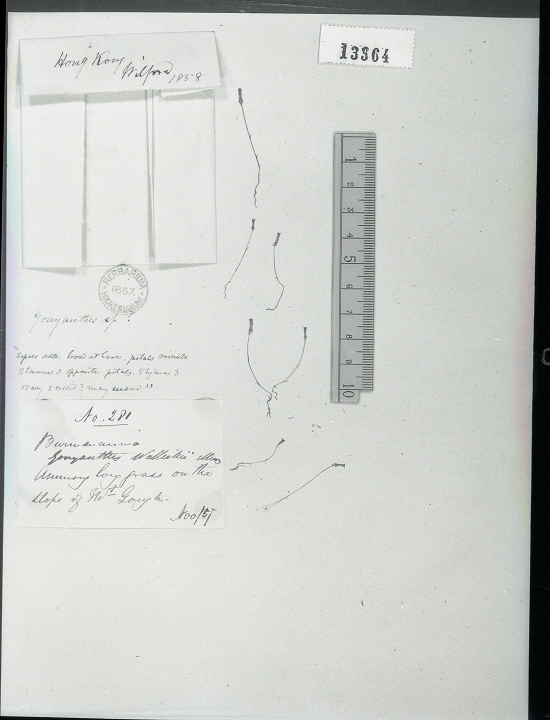 13364
Hong Kong
Wilford 1858
HERBARIUM
1867
HOOKERIANUM
Gonyanthes sp?
"Sepals ovate broad at base, petals minute
Stamens 3 opposite petals, Stigmas 3
ovary 3 celled? many seeded"
No. 280
Burmannia
Gonyanthes Wallichii Miers
Among long grass on the
slope of Mt Gough.
Nov/57
1
2
3
4
5
6
7
8
9
10